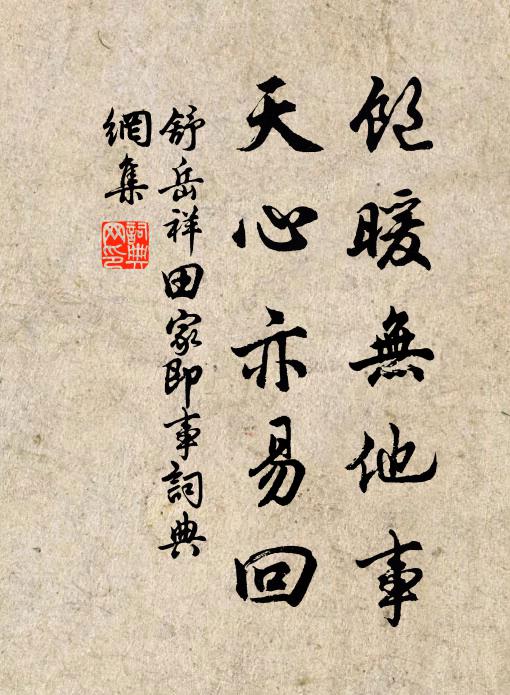 飽暖無他事
天心亦易回
舒岳祥田家即事詞典
網集
詞典
网印